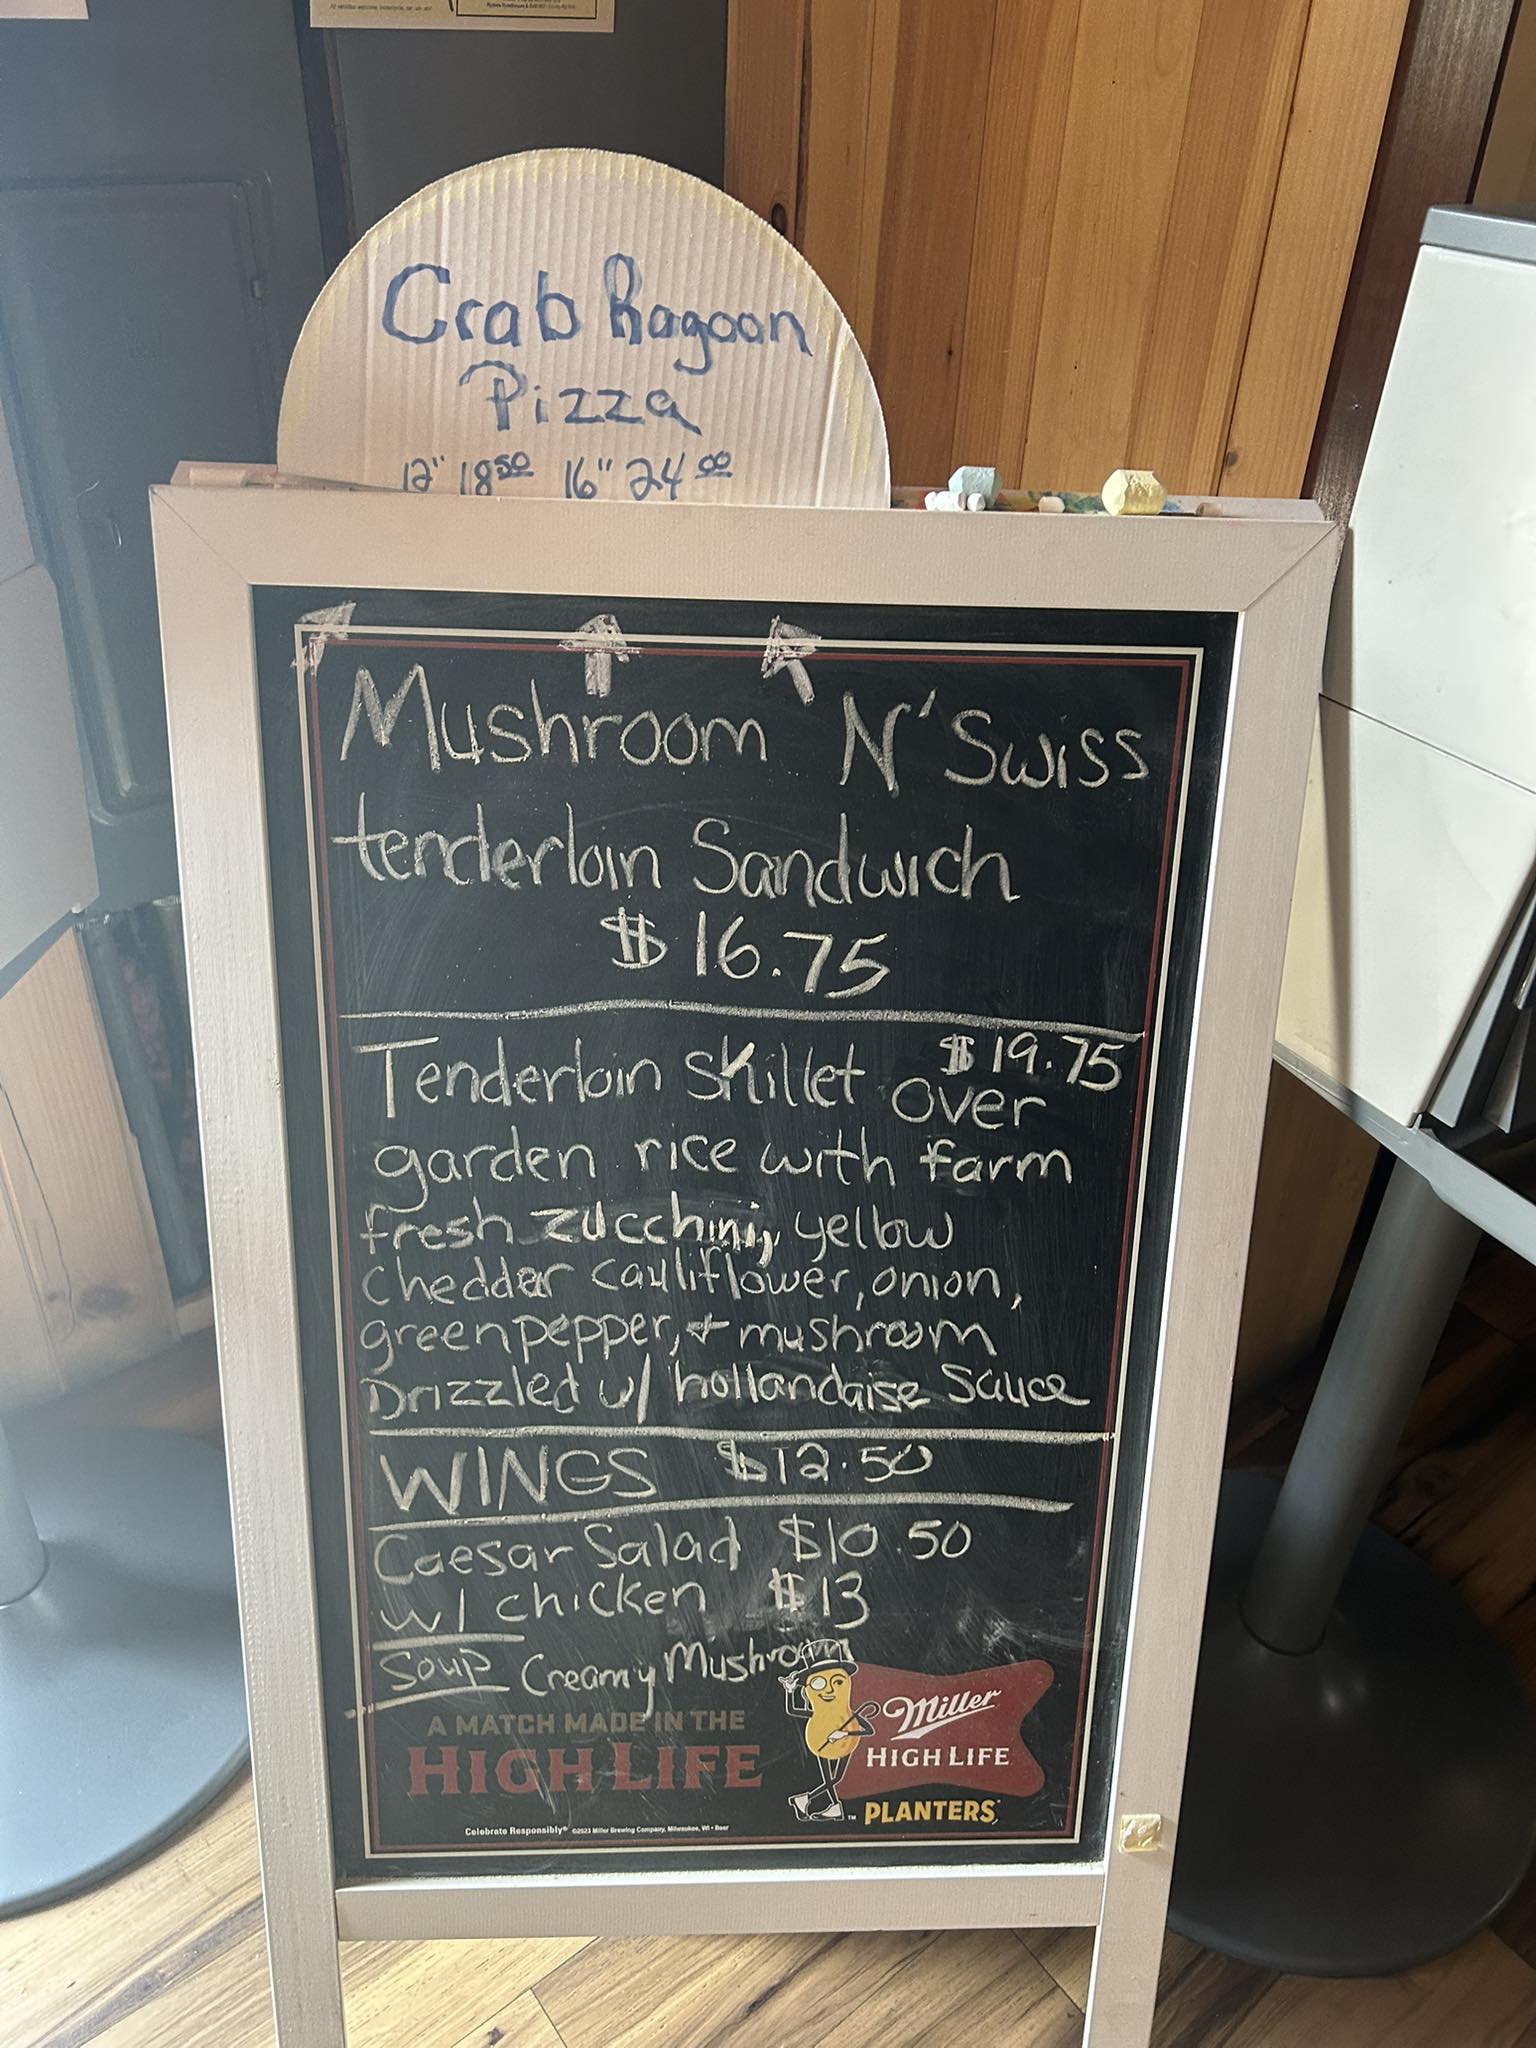 Crab Ragoon
Pizza
12" 18 50 16" 24 00
Mushroom N' Swiss
tenderloin Sandwich
$16.75
Tenderloin Skillet $19.75
over
garden rice with farm
fresh zucchini, yellow
Cheddar cauliflower, onion,
green pepper, + mushroom
Drizzled w/ hollandaise Sauce
WINGS $12.50
Caesar Salad $10.50
w/ chicken $13
Soup Creamy Mushroom
A MATCH MADE IN THE
HIGH LIFE
Miller
HIGH LIFE
PLANTERS
Celebrate Responsibly® ©2023 Miller Brewing Company, Milwaukee, WI • Beer